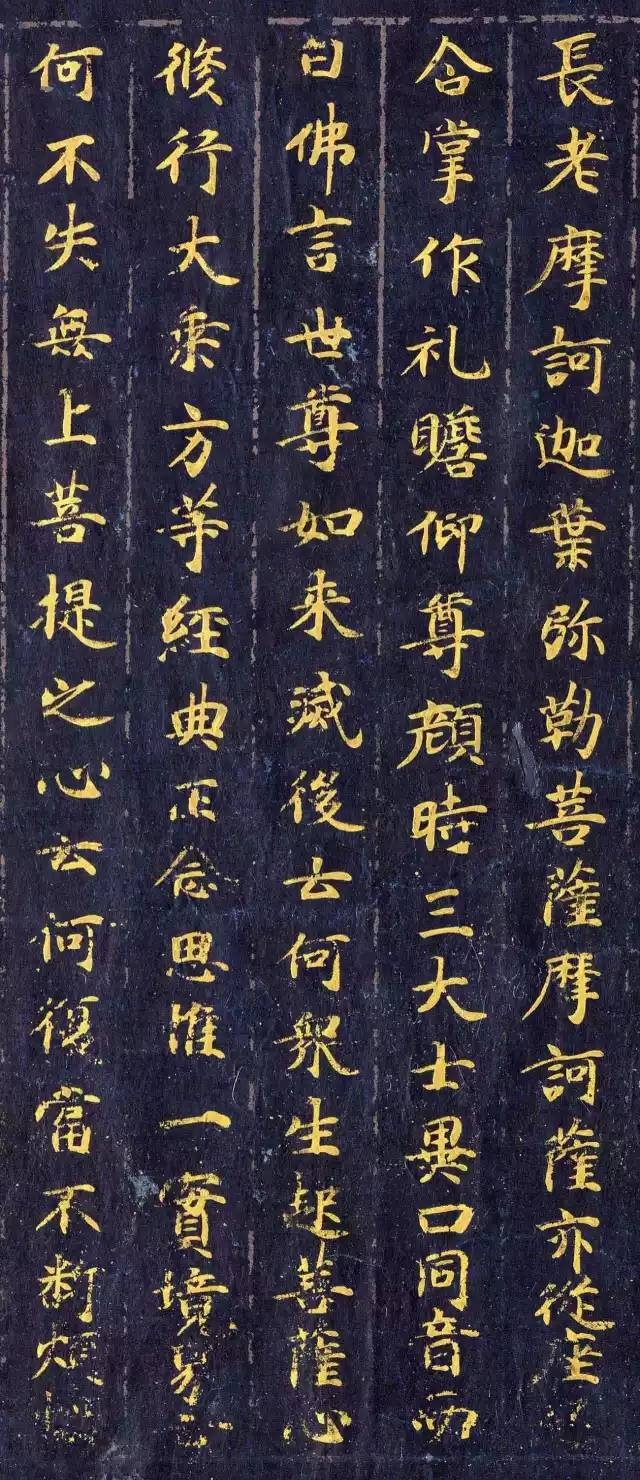 長老摩訶迦葉弥勒菩薩摩訶薩亦從座
合掌作礼瞻仰尊顔時三大士異口同音而
白佛言世尊如来滅後云何衆生起菩薩心
修行大乗方等経典正念思惟一實境界云
何不失無上菩提之心云何復當不断煩惱